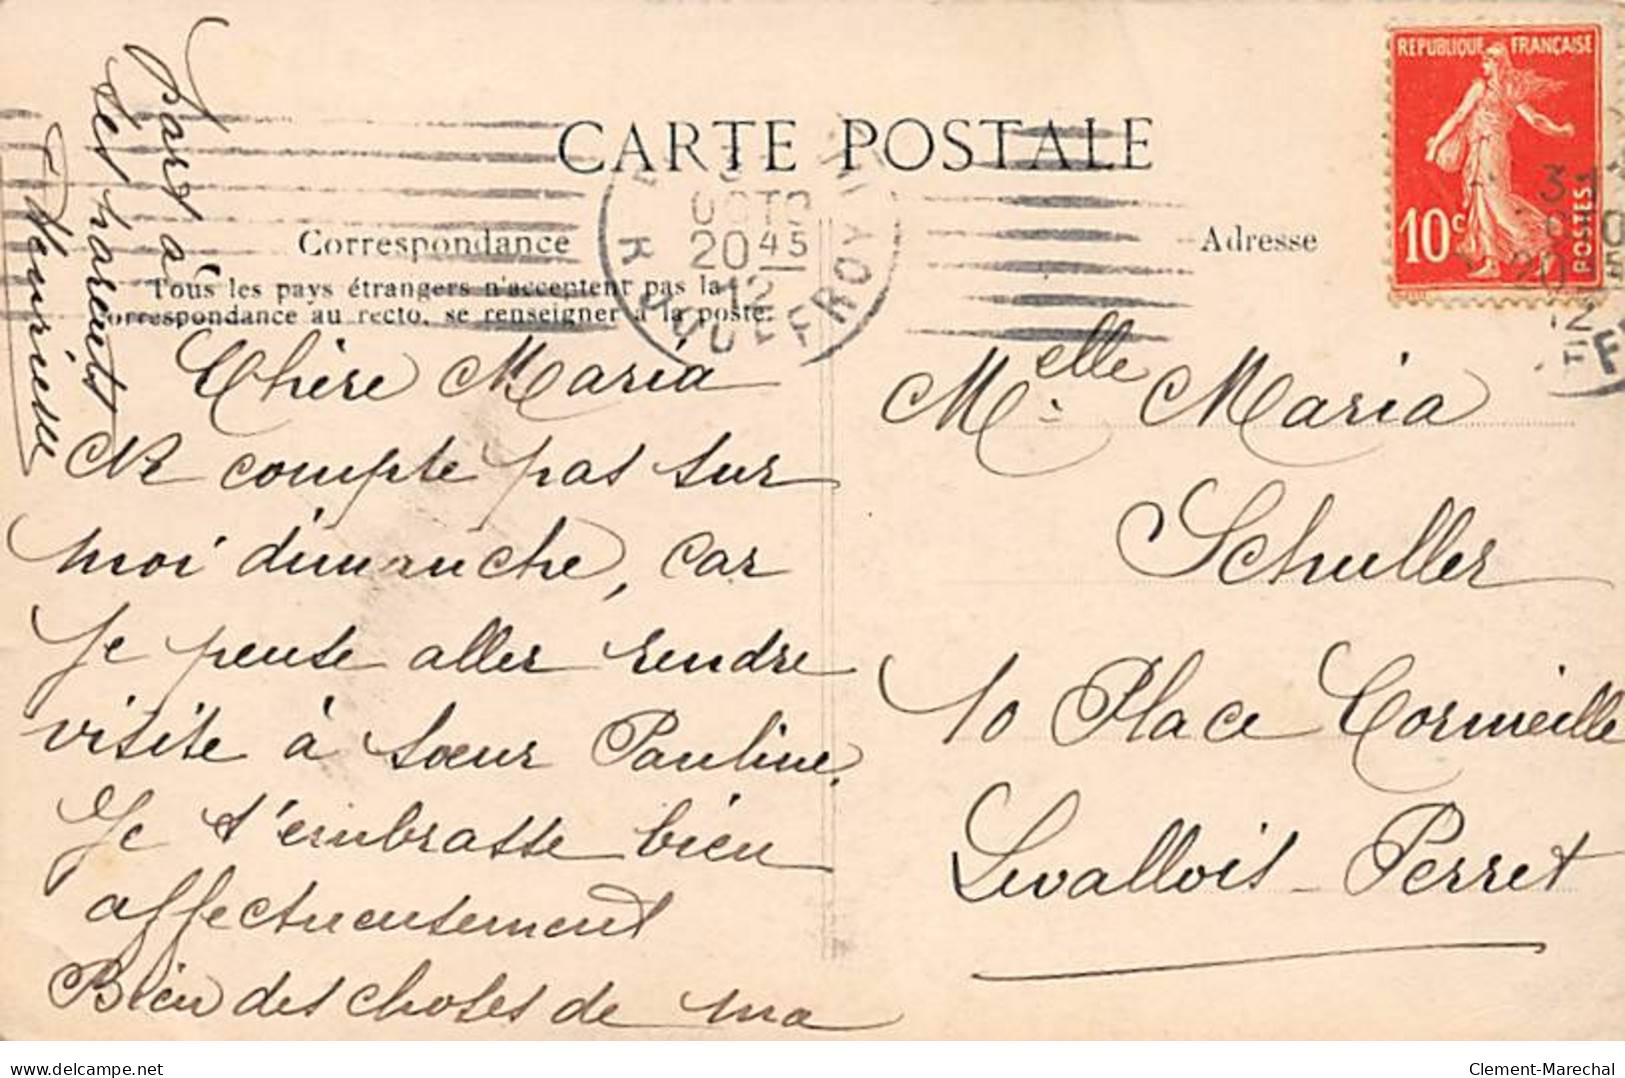 CARTE POSTALE
REPUBLIQUE FRANÇAISE
10c
POSTES
Correspondance
Adresse
Tous les pays étrangers n'acceptent pas la
correspondance au recto, se renseigner à la poste.
R. ROUGET
OCTO
20 45
12
Chère Maria
Ne compte pas sur
moi dimanche, car
je pense aller rendre
visite à sœur Pauline.
Je t'embrasse bien
affectueusement
Bien des choses de ma
part à
tes parents
Henriette
Melle Maria
Schuller
10 Place Cormeille
Levallois-Perret
delcampe.net
Clement-Marechal